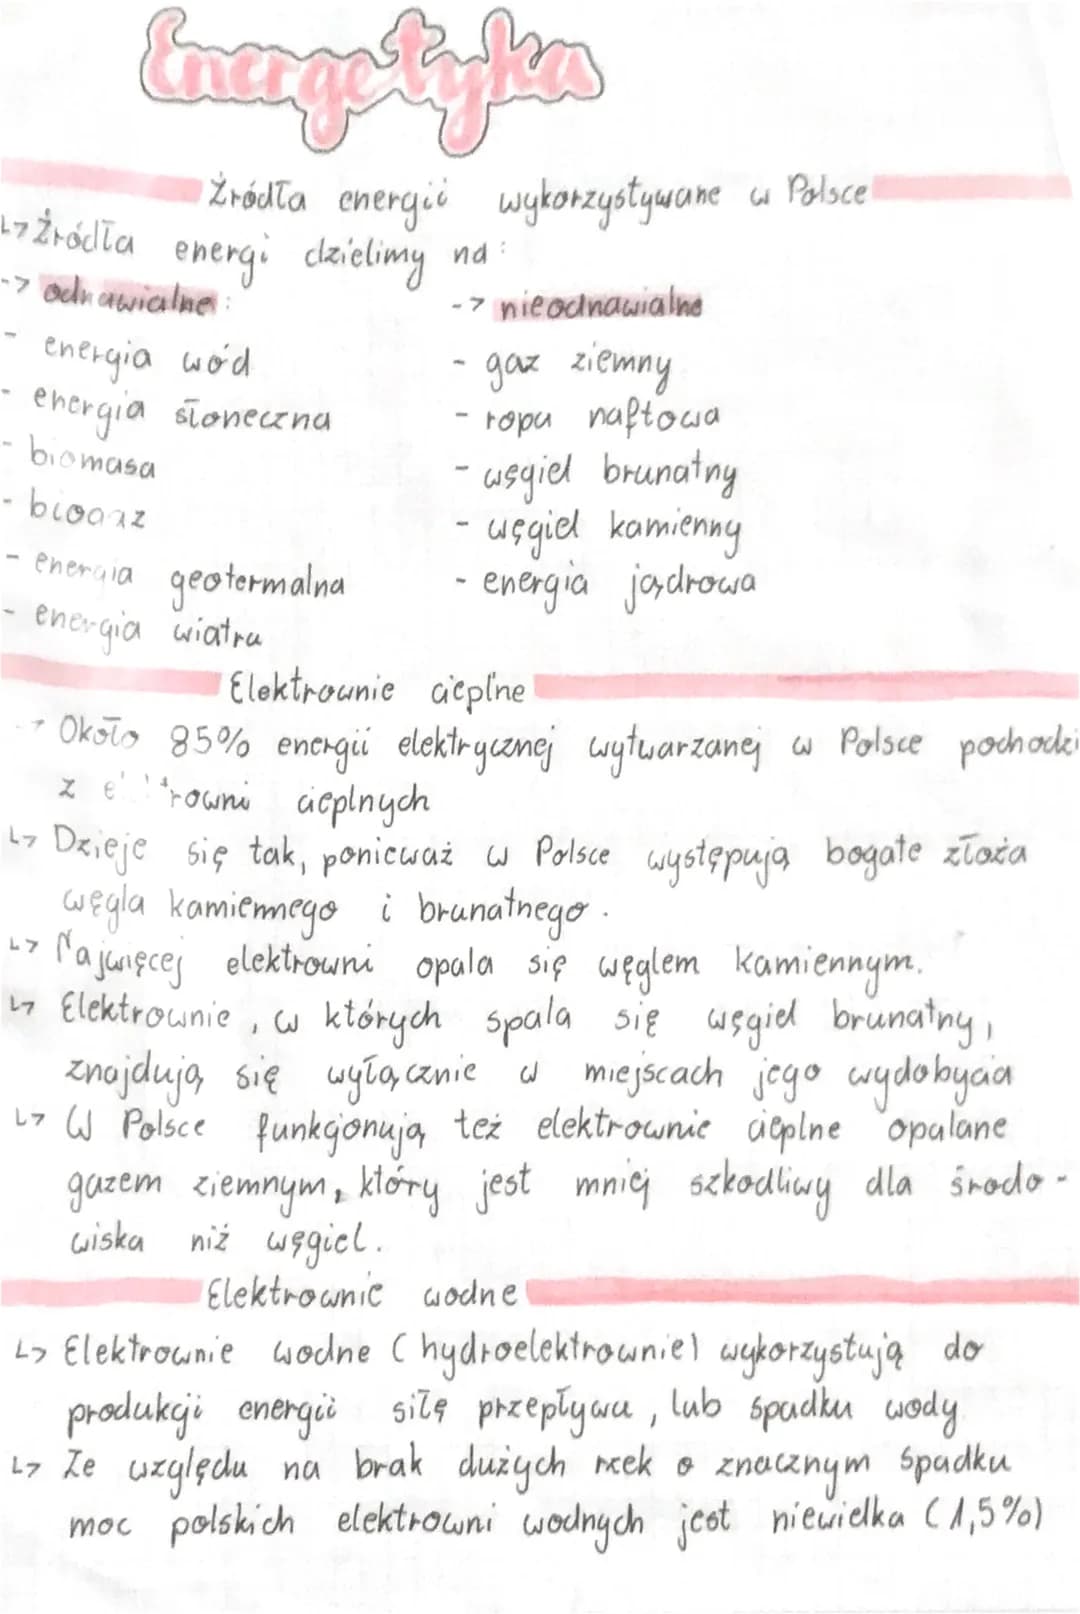 Energetyka
Źródła energii wykorzystywane w Polsce
↳ Źródła energi dzielimy na:
-> odnawialne:
- energia wód
- energia słoneczna
- biomasa
- biogaz
- energia geotermalna
- energia wiatru
-> nieodnawialne
- gaz ziemny
- ropa naftowa
- węgiel brunatny
- węgiel kamienny
- energia jądrowa
Elektrownie cieplne
-> Około 85% energii elektrycznej wytwarzanej w Polsce pochodzi
z elektrowni cieplnych
↳ Dzieje się tak, ponieważ w Polsce występują bogate złoża
węgla kamiennego i brunatnego.
↳ Najwięcej elektrowni opala się węglem kamiennym.
↳ Elektrownie, w których spala się węgiel brunatny,
znajdują się wyłącznie w miejscach jego wydobycia
↳ W Polsce funkcjonują też elektrownie cieplne opalane
gazem ziemnym, który jest mniej szkodliwy dla środo-
wiska niż węgiel.
Elektrownie wodne
↳ Elektrownie wodne (hydroelektrownie) wykorzystują do
produkcji energii siłę przepływu, lub spadku wody
↳ Ze względu na brak dużych rzek o znacznym spadku
moc polskich elektrowni wodnych jest niewielka (1,5%)